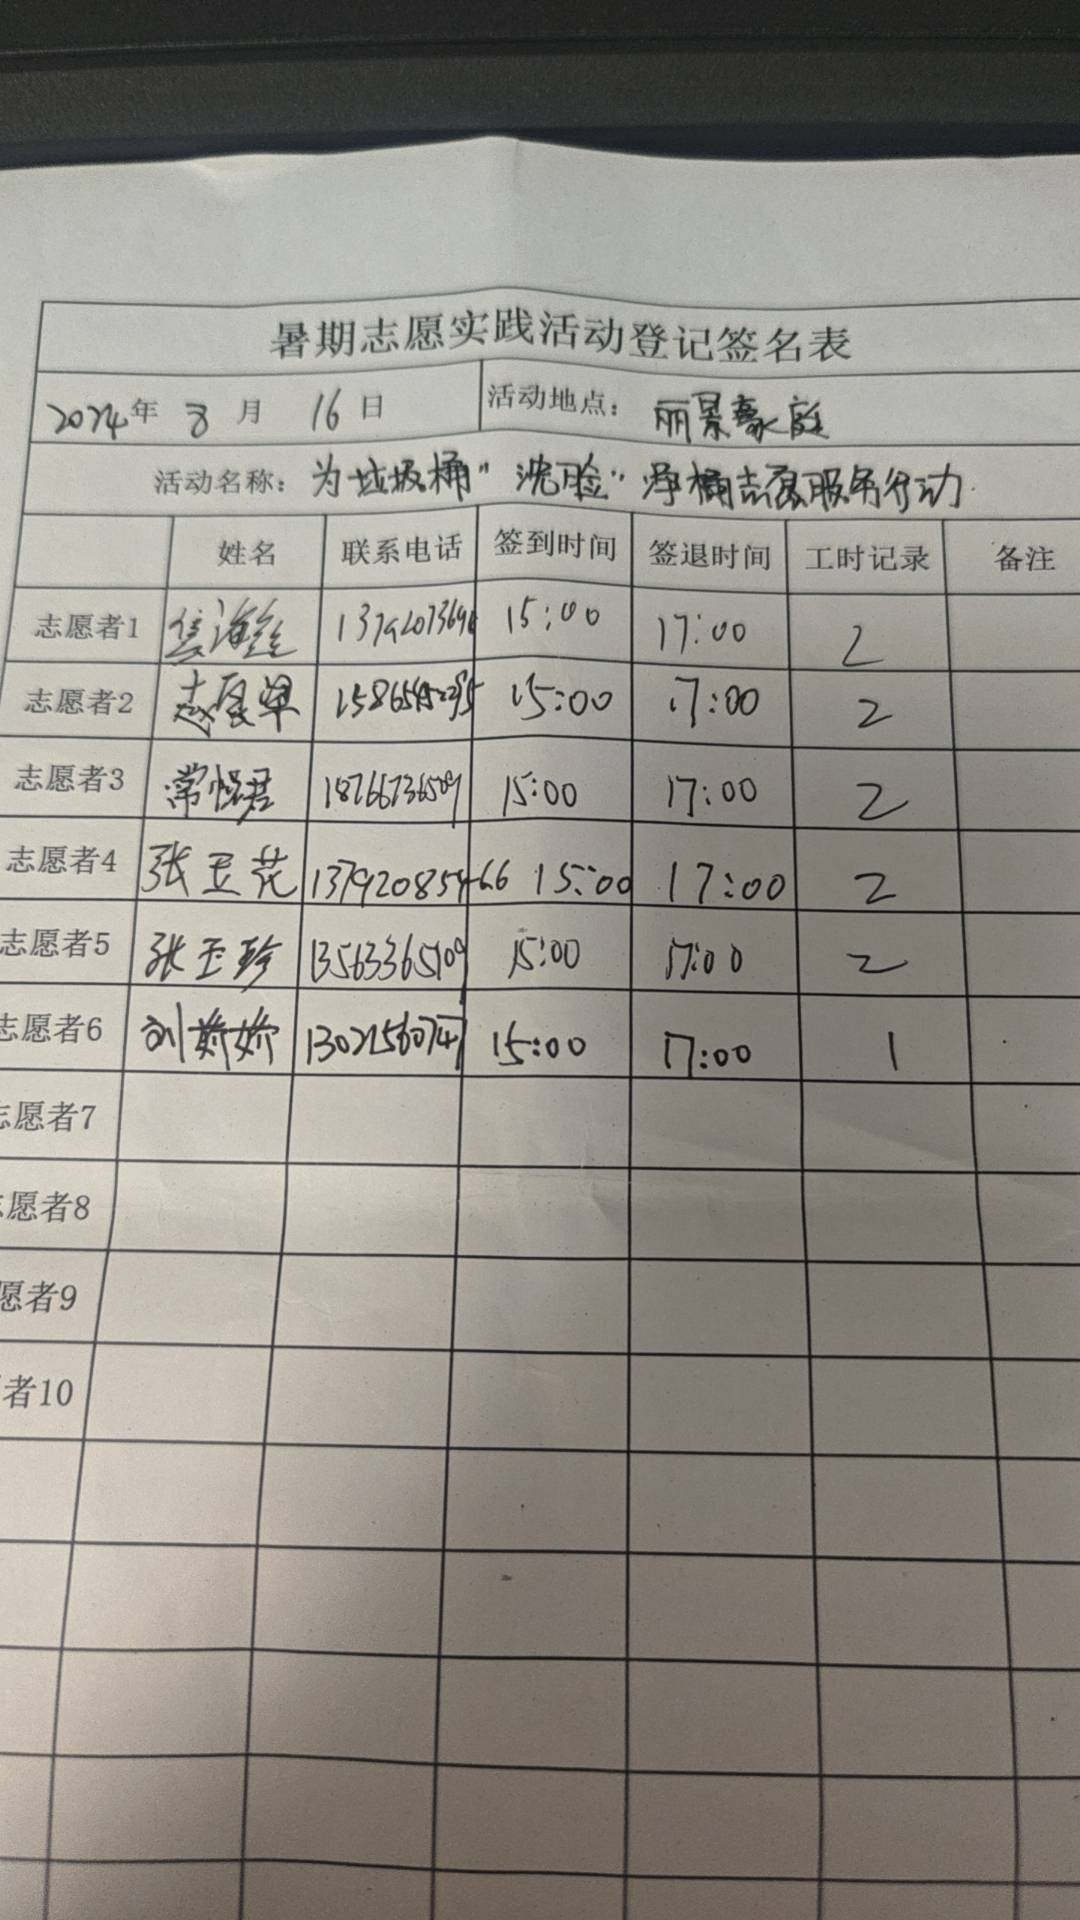 暑期志愿实践活动登记签名表
2024年 8月 16日 活动地点：丽景豪庭
活动名称：为垃圾桶“洗脸”净桶志愿服务行动
姓名 联系电话 签到时间 签退时间 工时记录 备注
志愿者1 15:00 17:00 2
志愿者2 15:00 17:00 2
志愿者3 18766736509 15:00 17:00 2
志愿者4 张玉花 13792085466 15:00 17:00 2
志愿者5 张玉珍 13563365109 15:00 17:00 2
志愿者6 刘娇娇 13021560747 15:00 17:00 1
志愿者7
愿者8
愿者9
者10